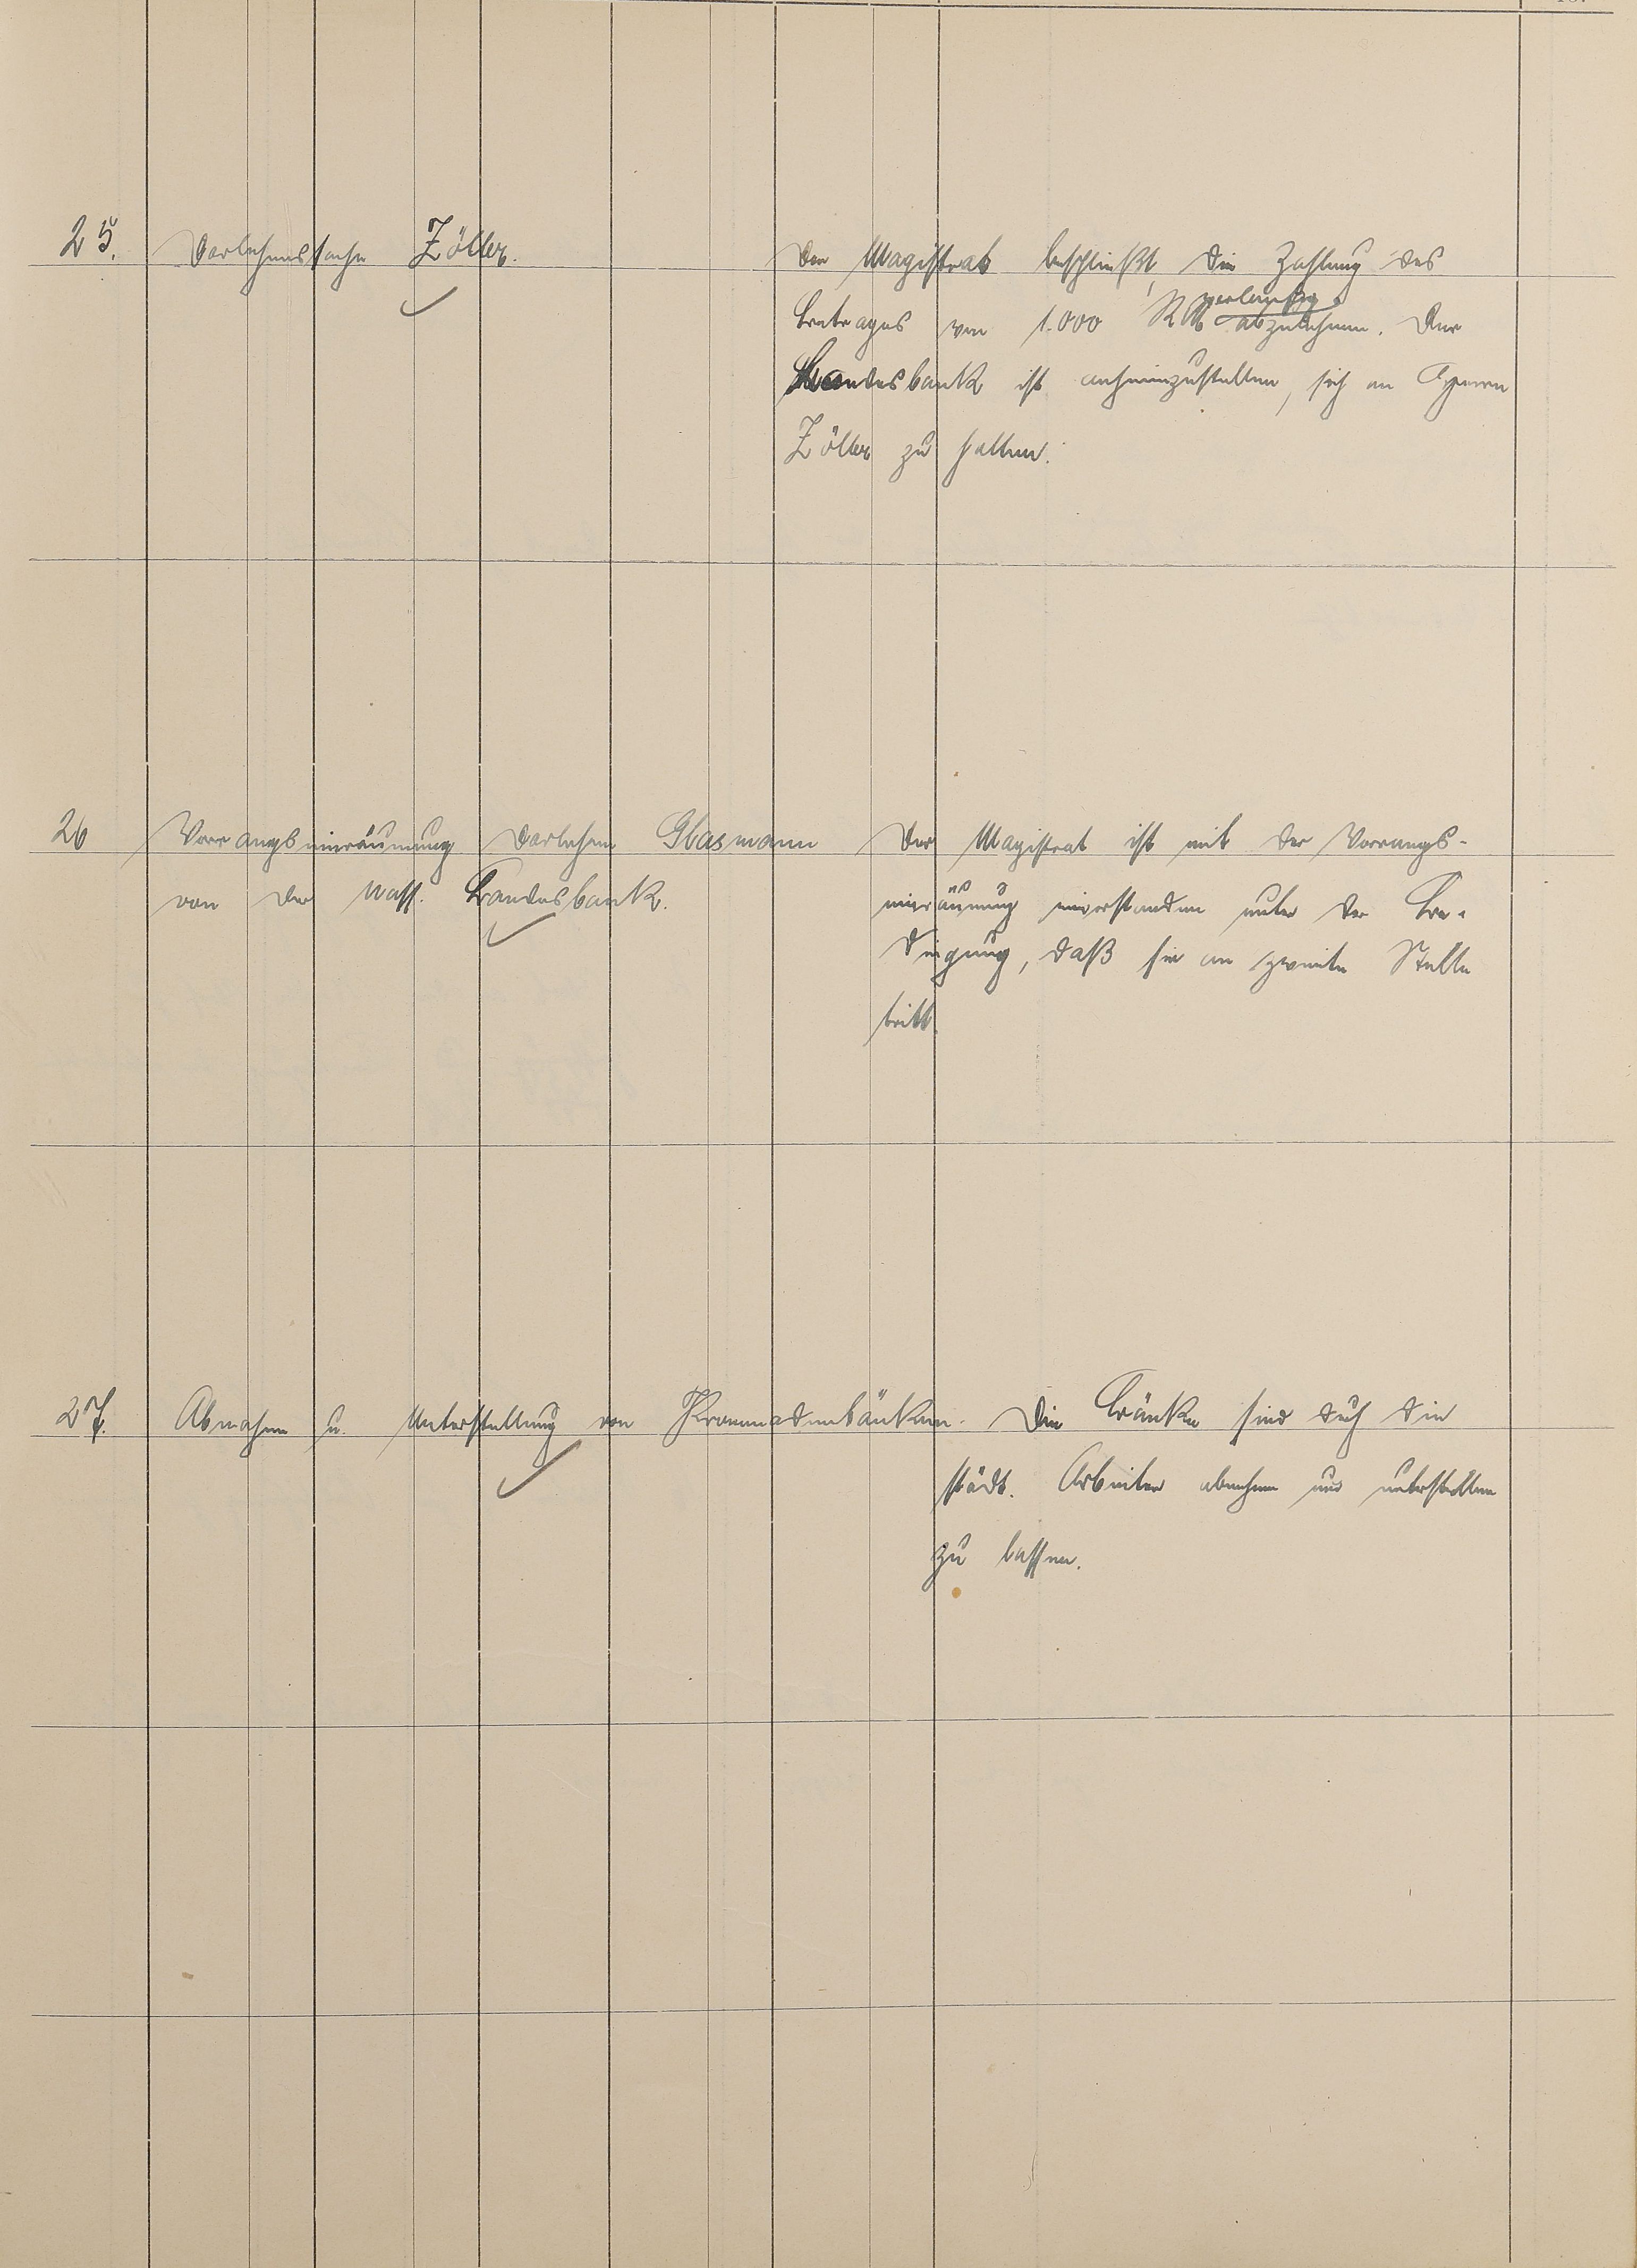 25. Darlehenssache Zöller.
Der Magistrat beschließt, die Zahlung des
Betrages von 1.000 RM vorläufig abzulehnen. Der
Landesbank ist anheimzustellen, sich an Herrn
Zöller zu halten.
26 Vorrangseinräumung Darlehen Glasmann
von der Nass. Landesbank.
Der Magistrat ist mit der Vorrangs-
einräumung einverstanden unter der Be-
dingung, daß sie an zweite Stelle
tritt.
27. Abnahme u. Unterstellung von Promenadenbänken.
Die Bänke sind durch die
städt. Arbeiter abnehmen und unterstellen
zu lassen.